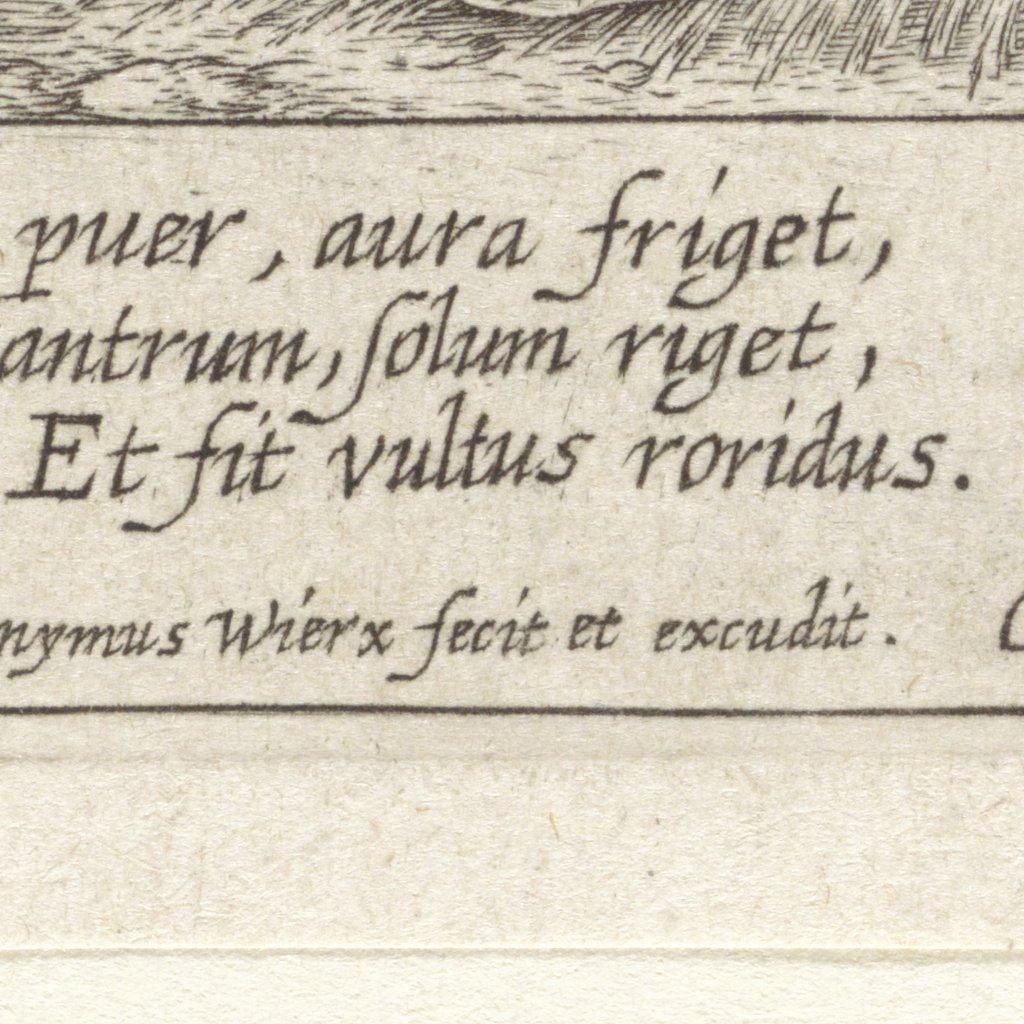 puer, aura friget,
antrum, ſolum riget,
Et fit vultus roridus.
nymus Wierx fecit et excudit.